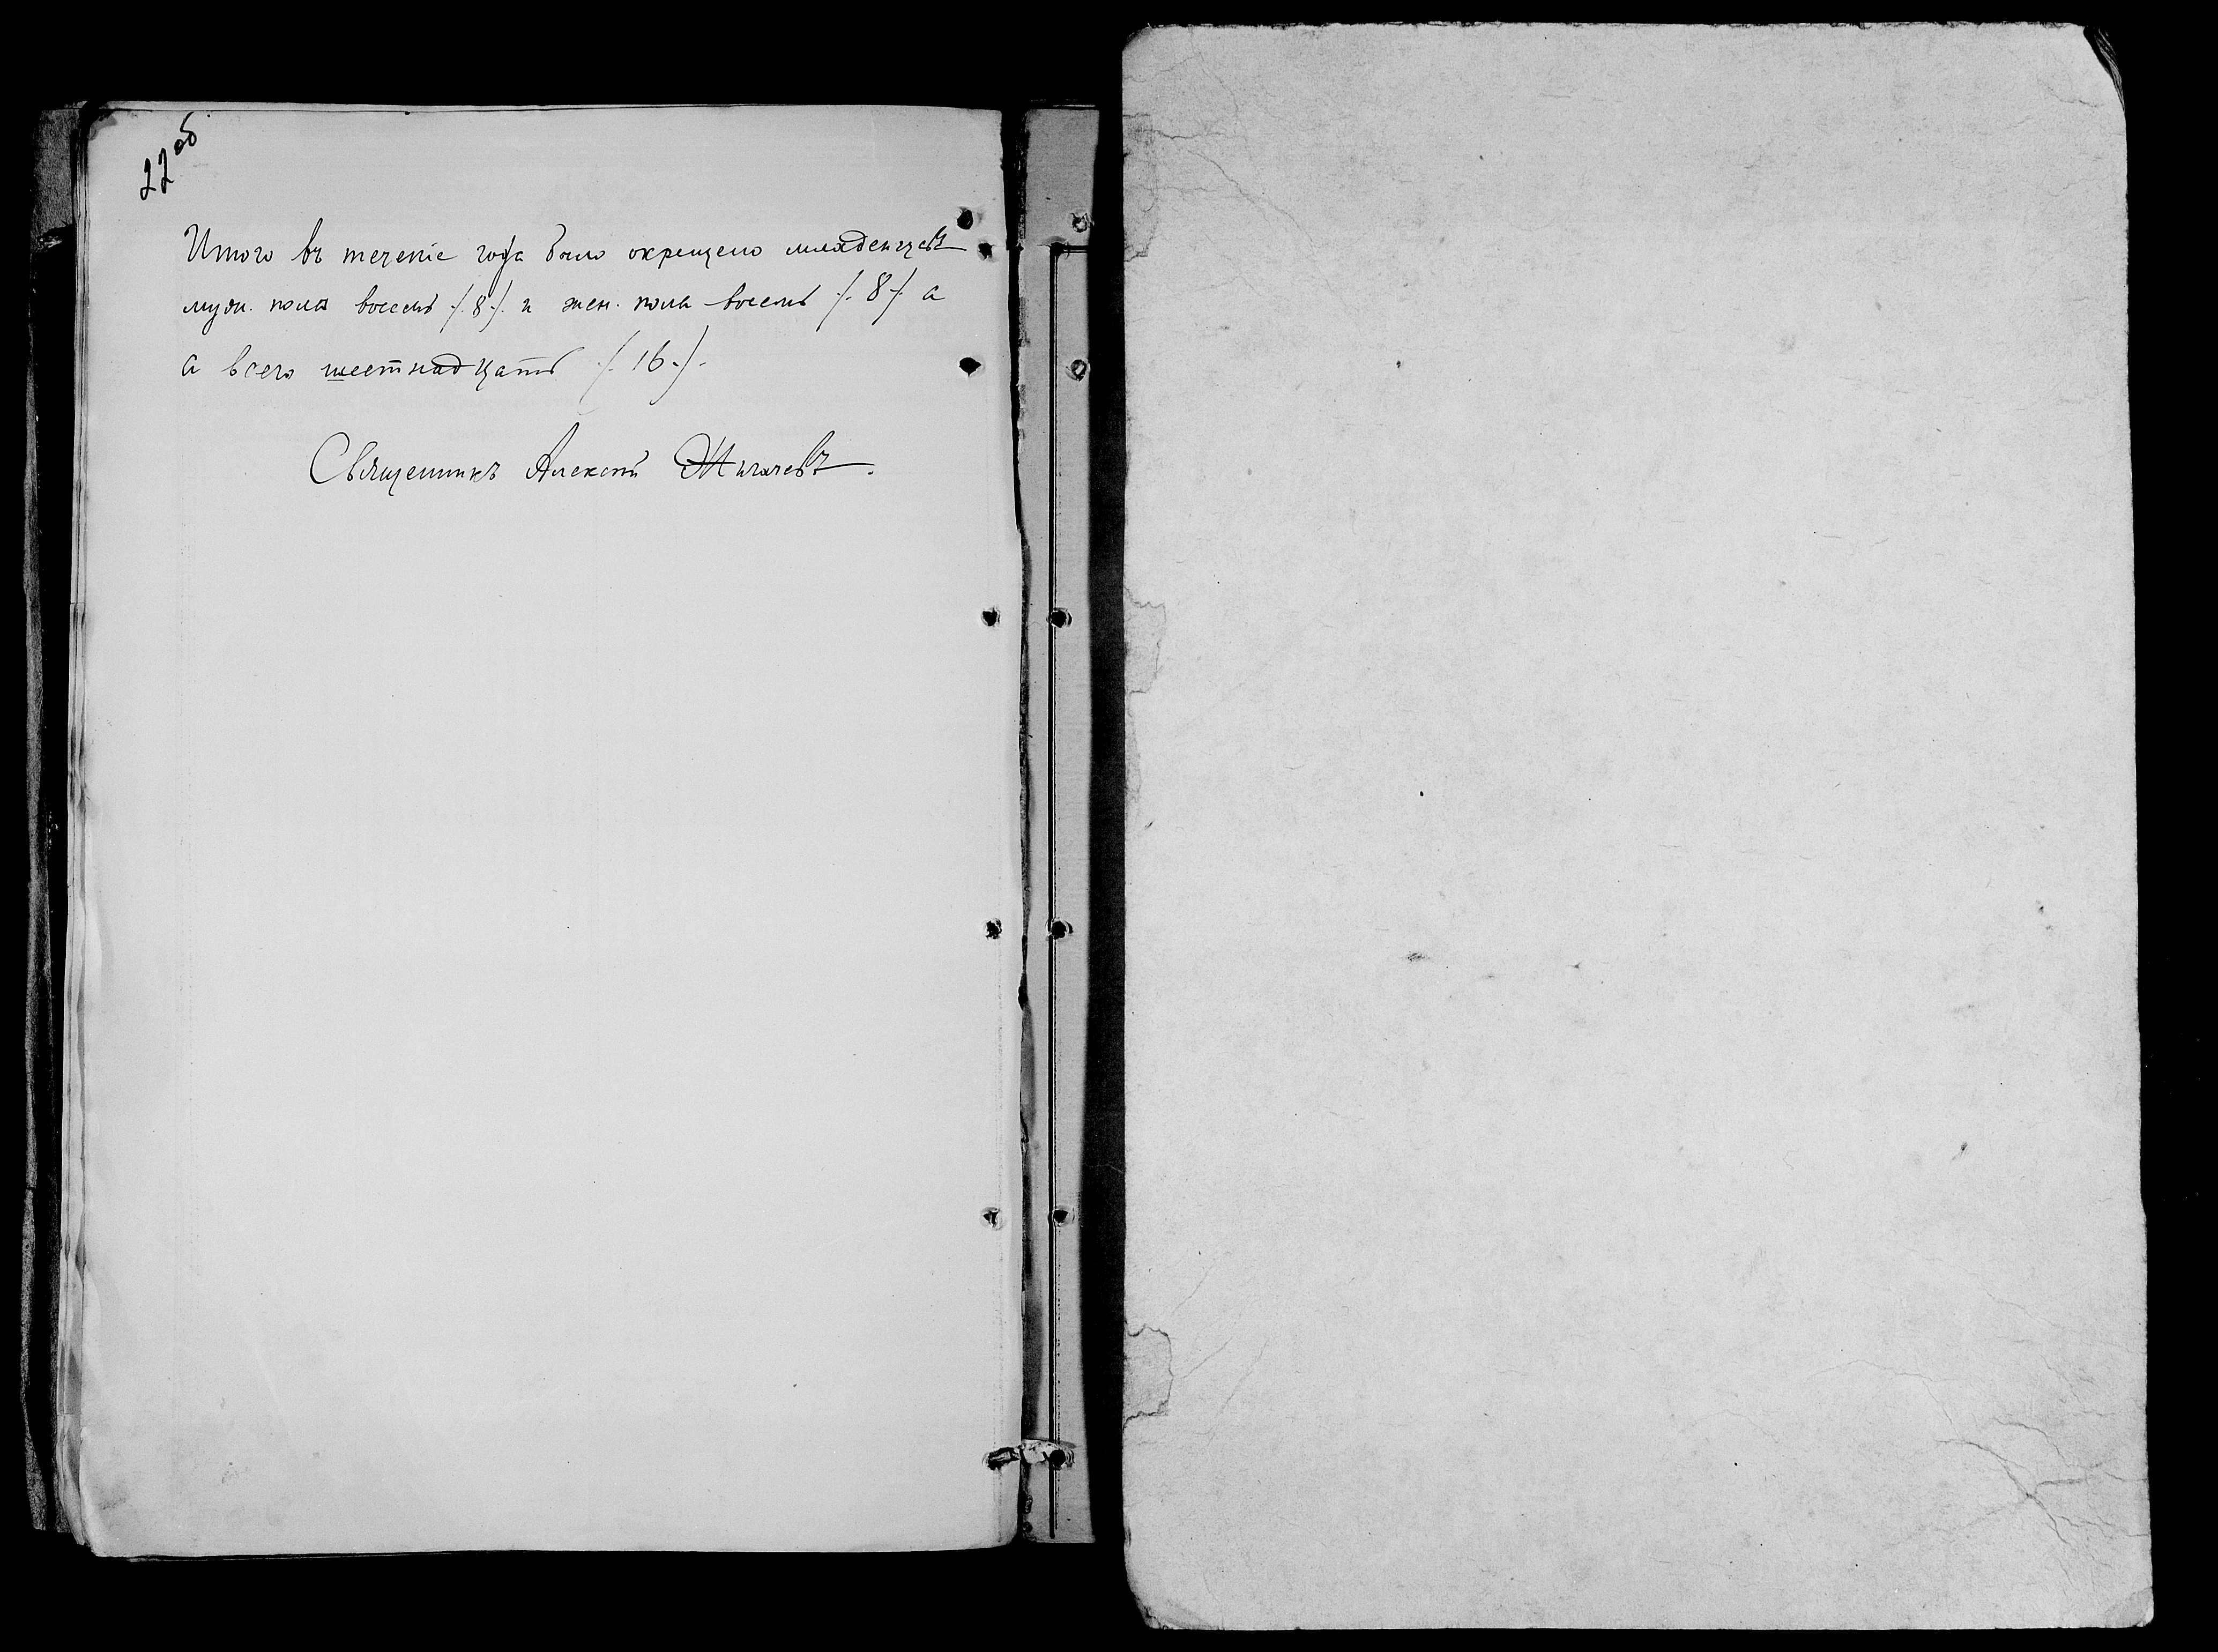 22 об
Итого въ теченіе года было окрещено младенцевъ
муж. пола восемь /.8./. и жен. пола восемь /.8./. а
а всего шестнадцать /.16./.
Священникъ Алексѣй